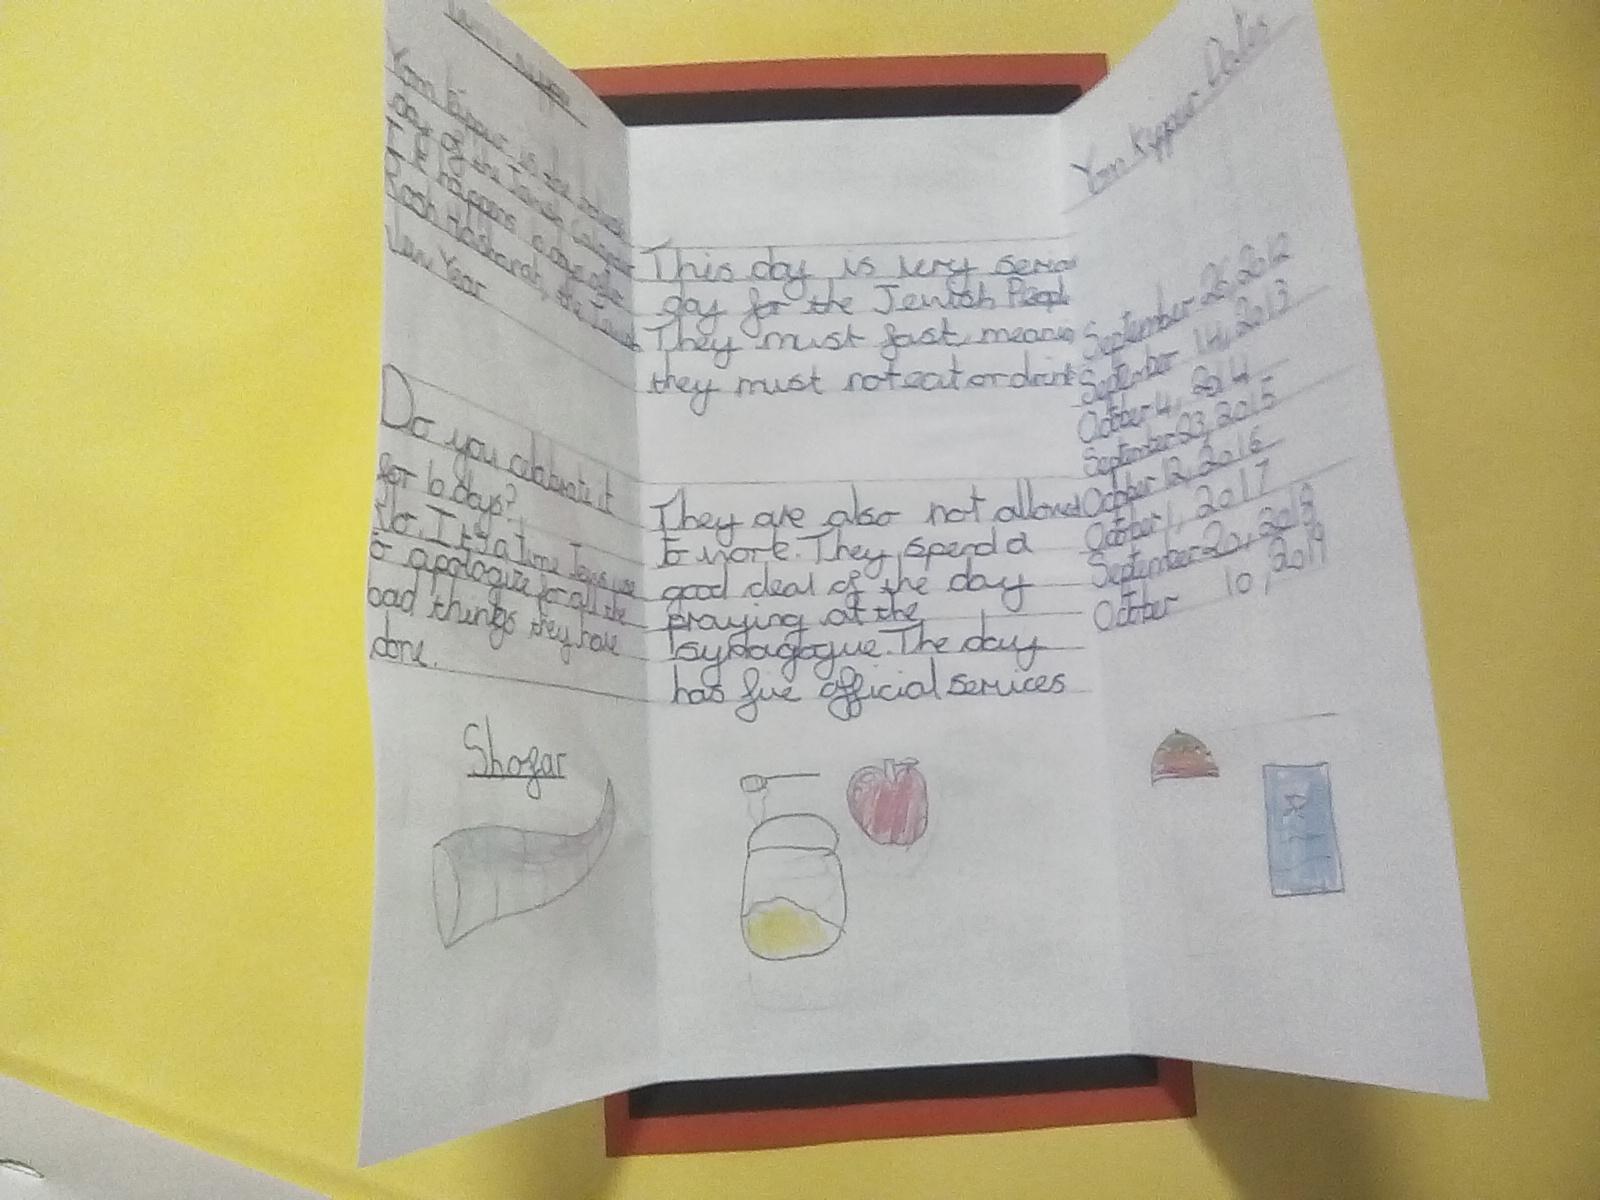 Yom Kippur
Yom Kippur is the holiest
day of the Jewish Calendar
It happens 10 days after
Rosh Hasharah, the Jewish
New Year
Do you celebrate it
for 10 days?
No. It's a time Jews use
to apologize for all the
bad things they have
done.
Shofar
This day is very serio
day for the Jewish Peopl
They must fast, means
they must not eat or drink
They are also not allowed
to work. They spend a
good deal of the day
praying at the
synagogue. The day
has five official services
Yom Kippur Dates
September 26, 2012
September 14, 2013
October 4, 2014
September 23, 2015
October 12, 2016
October 1, 2017
September 20, 2018
October 10, 2019